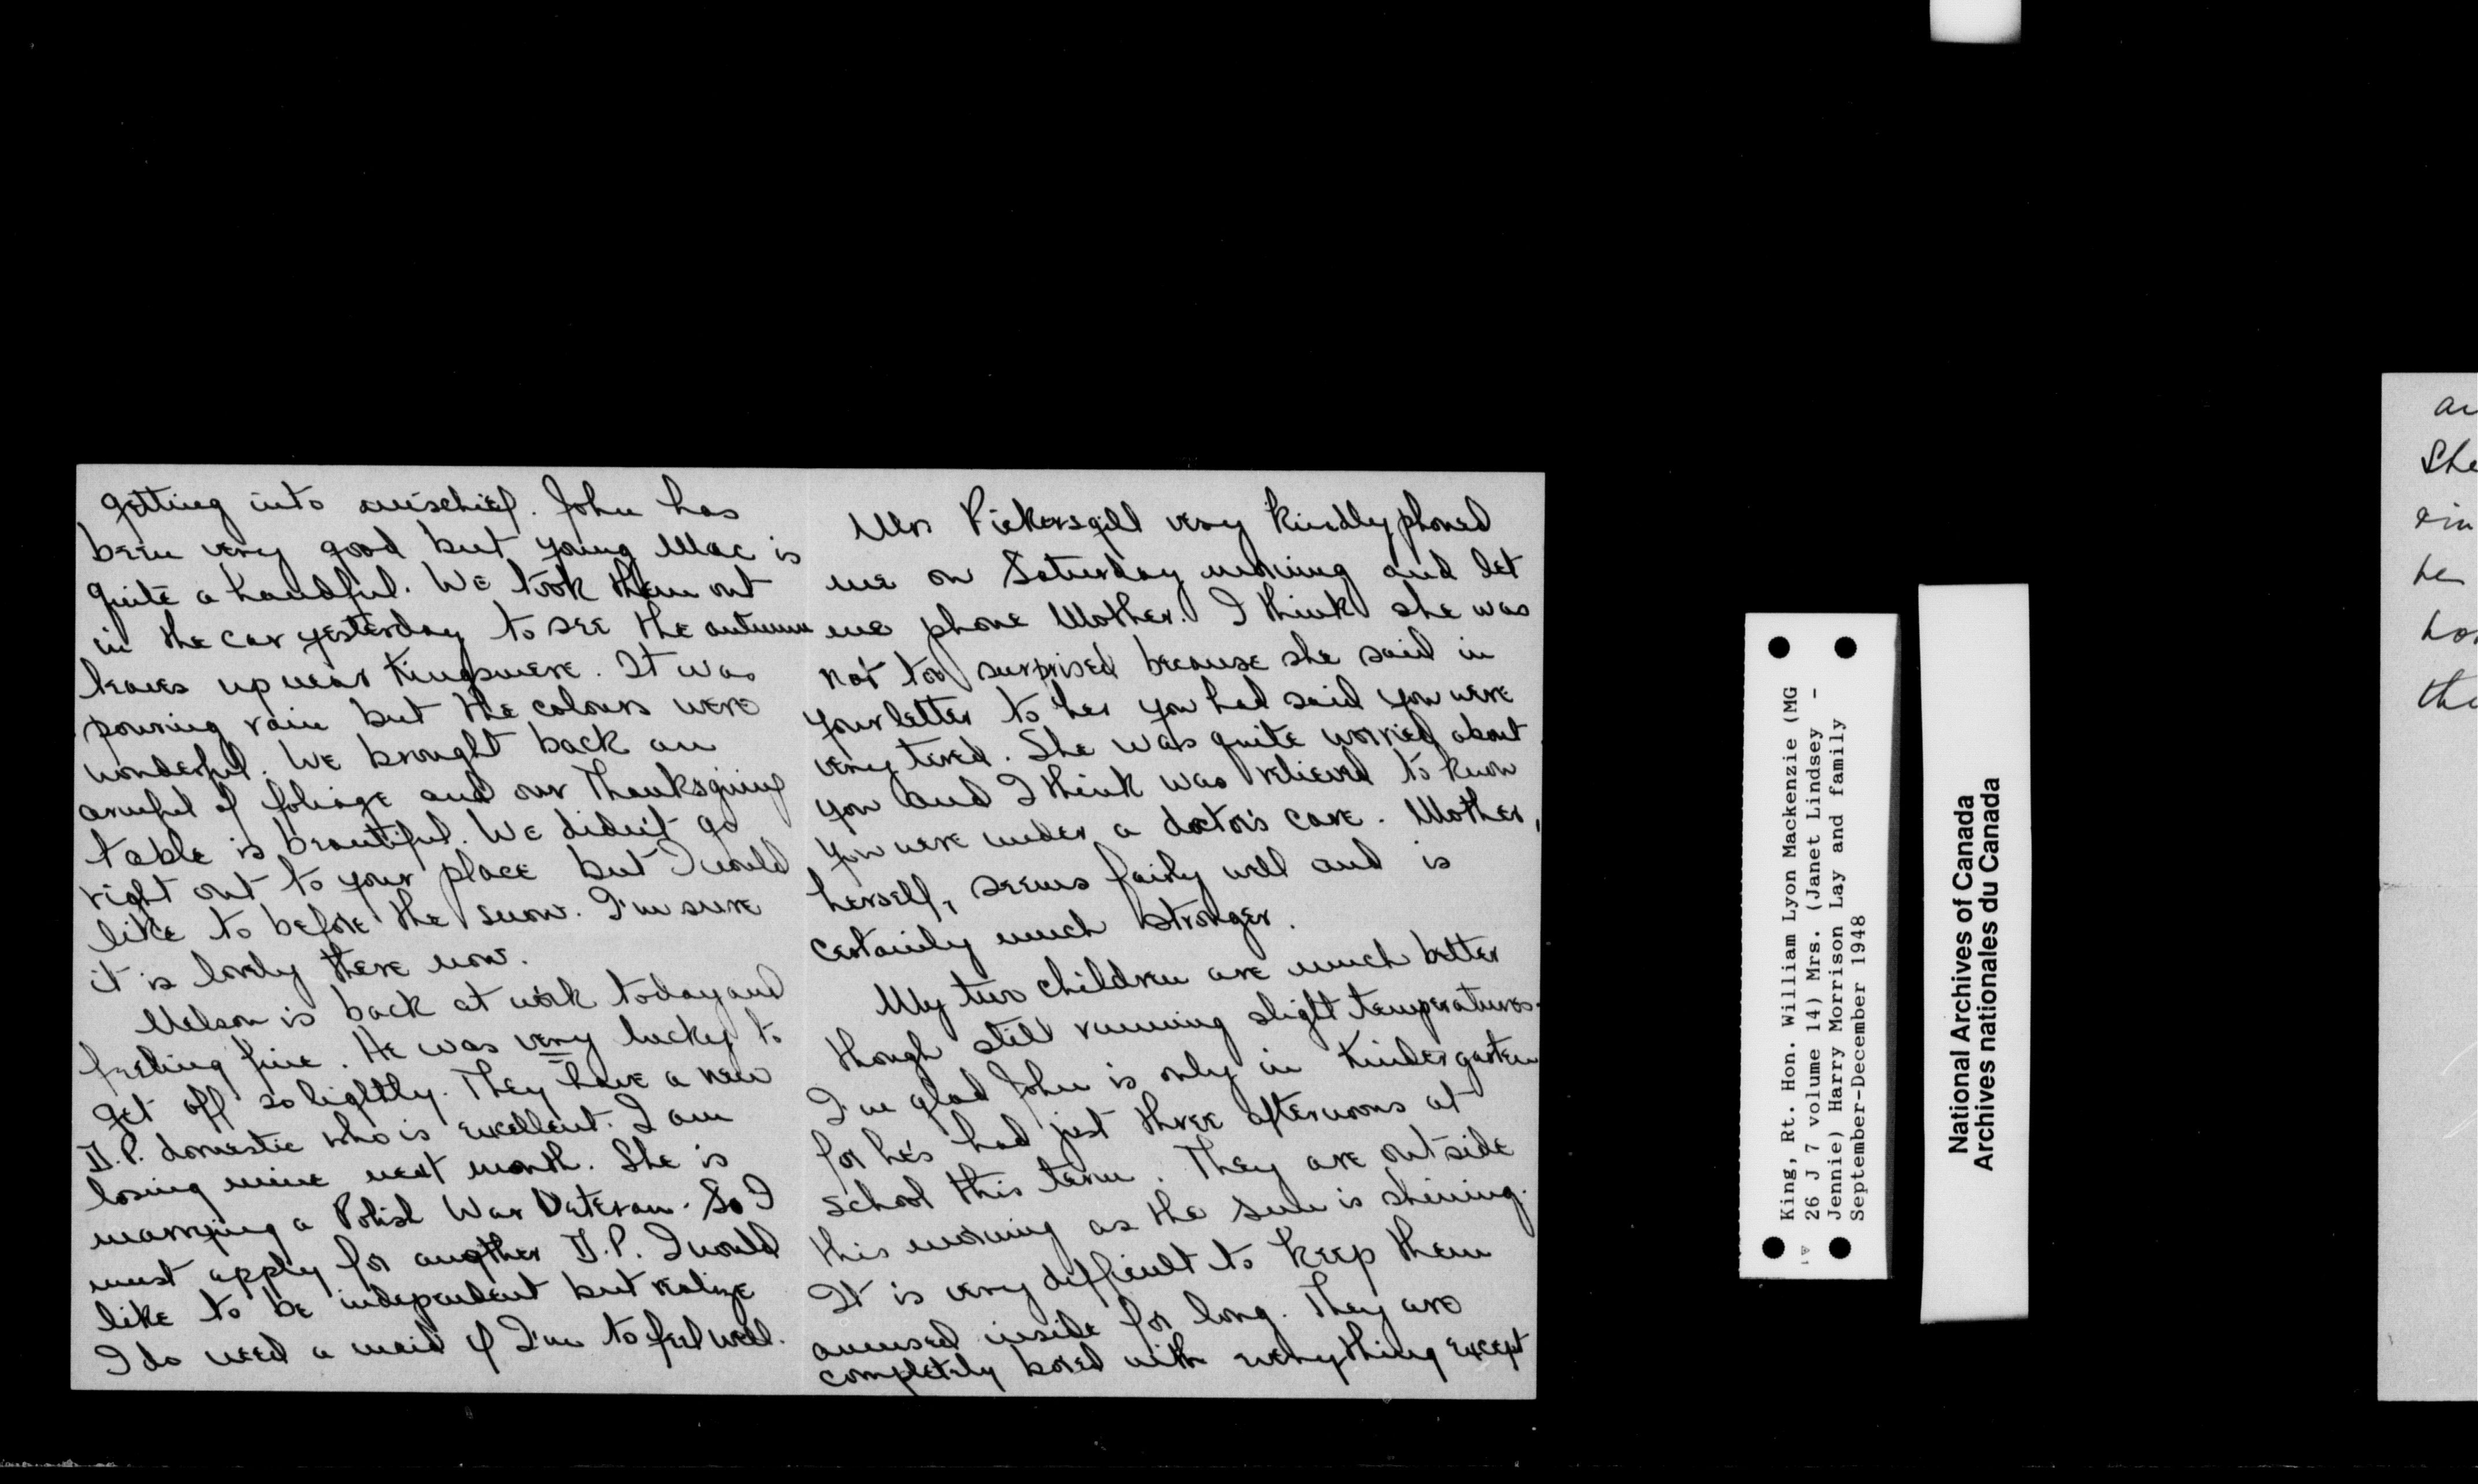 getting into mischief. John has
been very good but young Mac is
quite a handful. We took them out
in the car yesterday to see the autumn
leaves up near Kingsmere. It was
pouring rain but the colours were
wonderful. We brought back an
armful of foliage and our Thanksgiving
table is beautiful. We didn't go
right out to your place but I would
like to before the snow. I'm sure
it is lovely there now.
Nelson is back at work today and
feeling fine. He was very lucky to
get off so lightly. They have a new
D.P. domestic who is excellent. I am
losing mine next month. She is
marrying a Polish War Veteran. So I
must apply for another D.P. I would
like to be independent but realize
I do need a maid if I'm to feel well.
Mrs Pickersgill very kindly phoned
me on Saturday morning and let
me phone Mother. I think she was
not too surprised because she said in
your letter to her you had said you were
very tired. She was quite worried about
you and I think was relieved to know
you were under a doctor's care. Mother,
herself, seems fairly well and is
certainly much stronger.
My two children are much better
though still running slight temperatures.
I'm glad John is only in Kindergarten
for he's had just three afternoons at
school this term. They are outside
this morning as the sun is shining.
It is very difficult to keep them
amused inside for long. They are
completely bored with everything except
King, Rt. Hon. William Lyon Mackenzie (MG
26 J 7 volume 14) Mrs. (Janet Lindsey -
Jennie) Harry Morrison Lay and family
September-December 1948
National Archives of Canada
Archives nationales du Canada
She
her